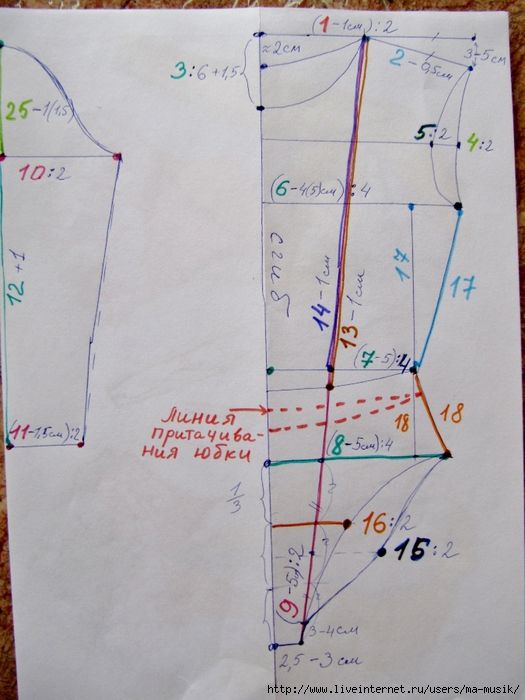 (1-1см):2
≈2см
2
-0,5см
3-5см
3:6+1,5
25-1(1,5)
5:2
4:2
10:2
(6-4(5)см):4
сгиб
12+1
17
17
14-1см
13-1см
(7-5):4
Линия
притачива-
ния юбки
18
18
(11-1,5см):2
(8-5см):4
1/3
16:2
15:2
(9-5):2
3-4см
2,5-3см
http://www.liveinternet.ru/users/ma-musik/